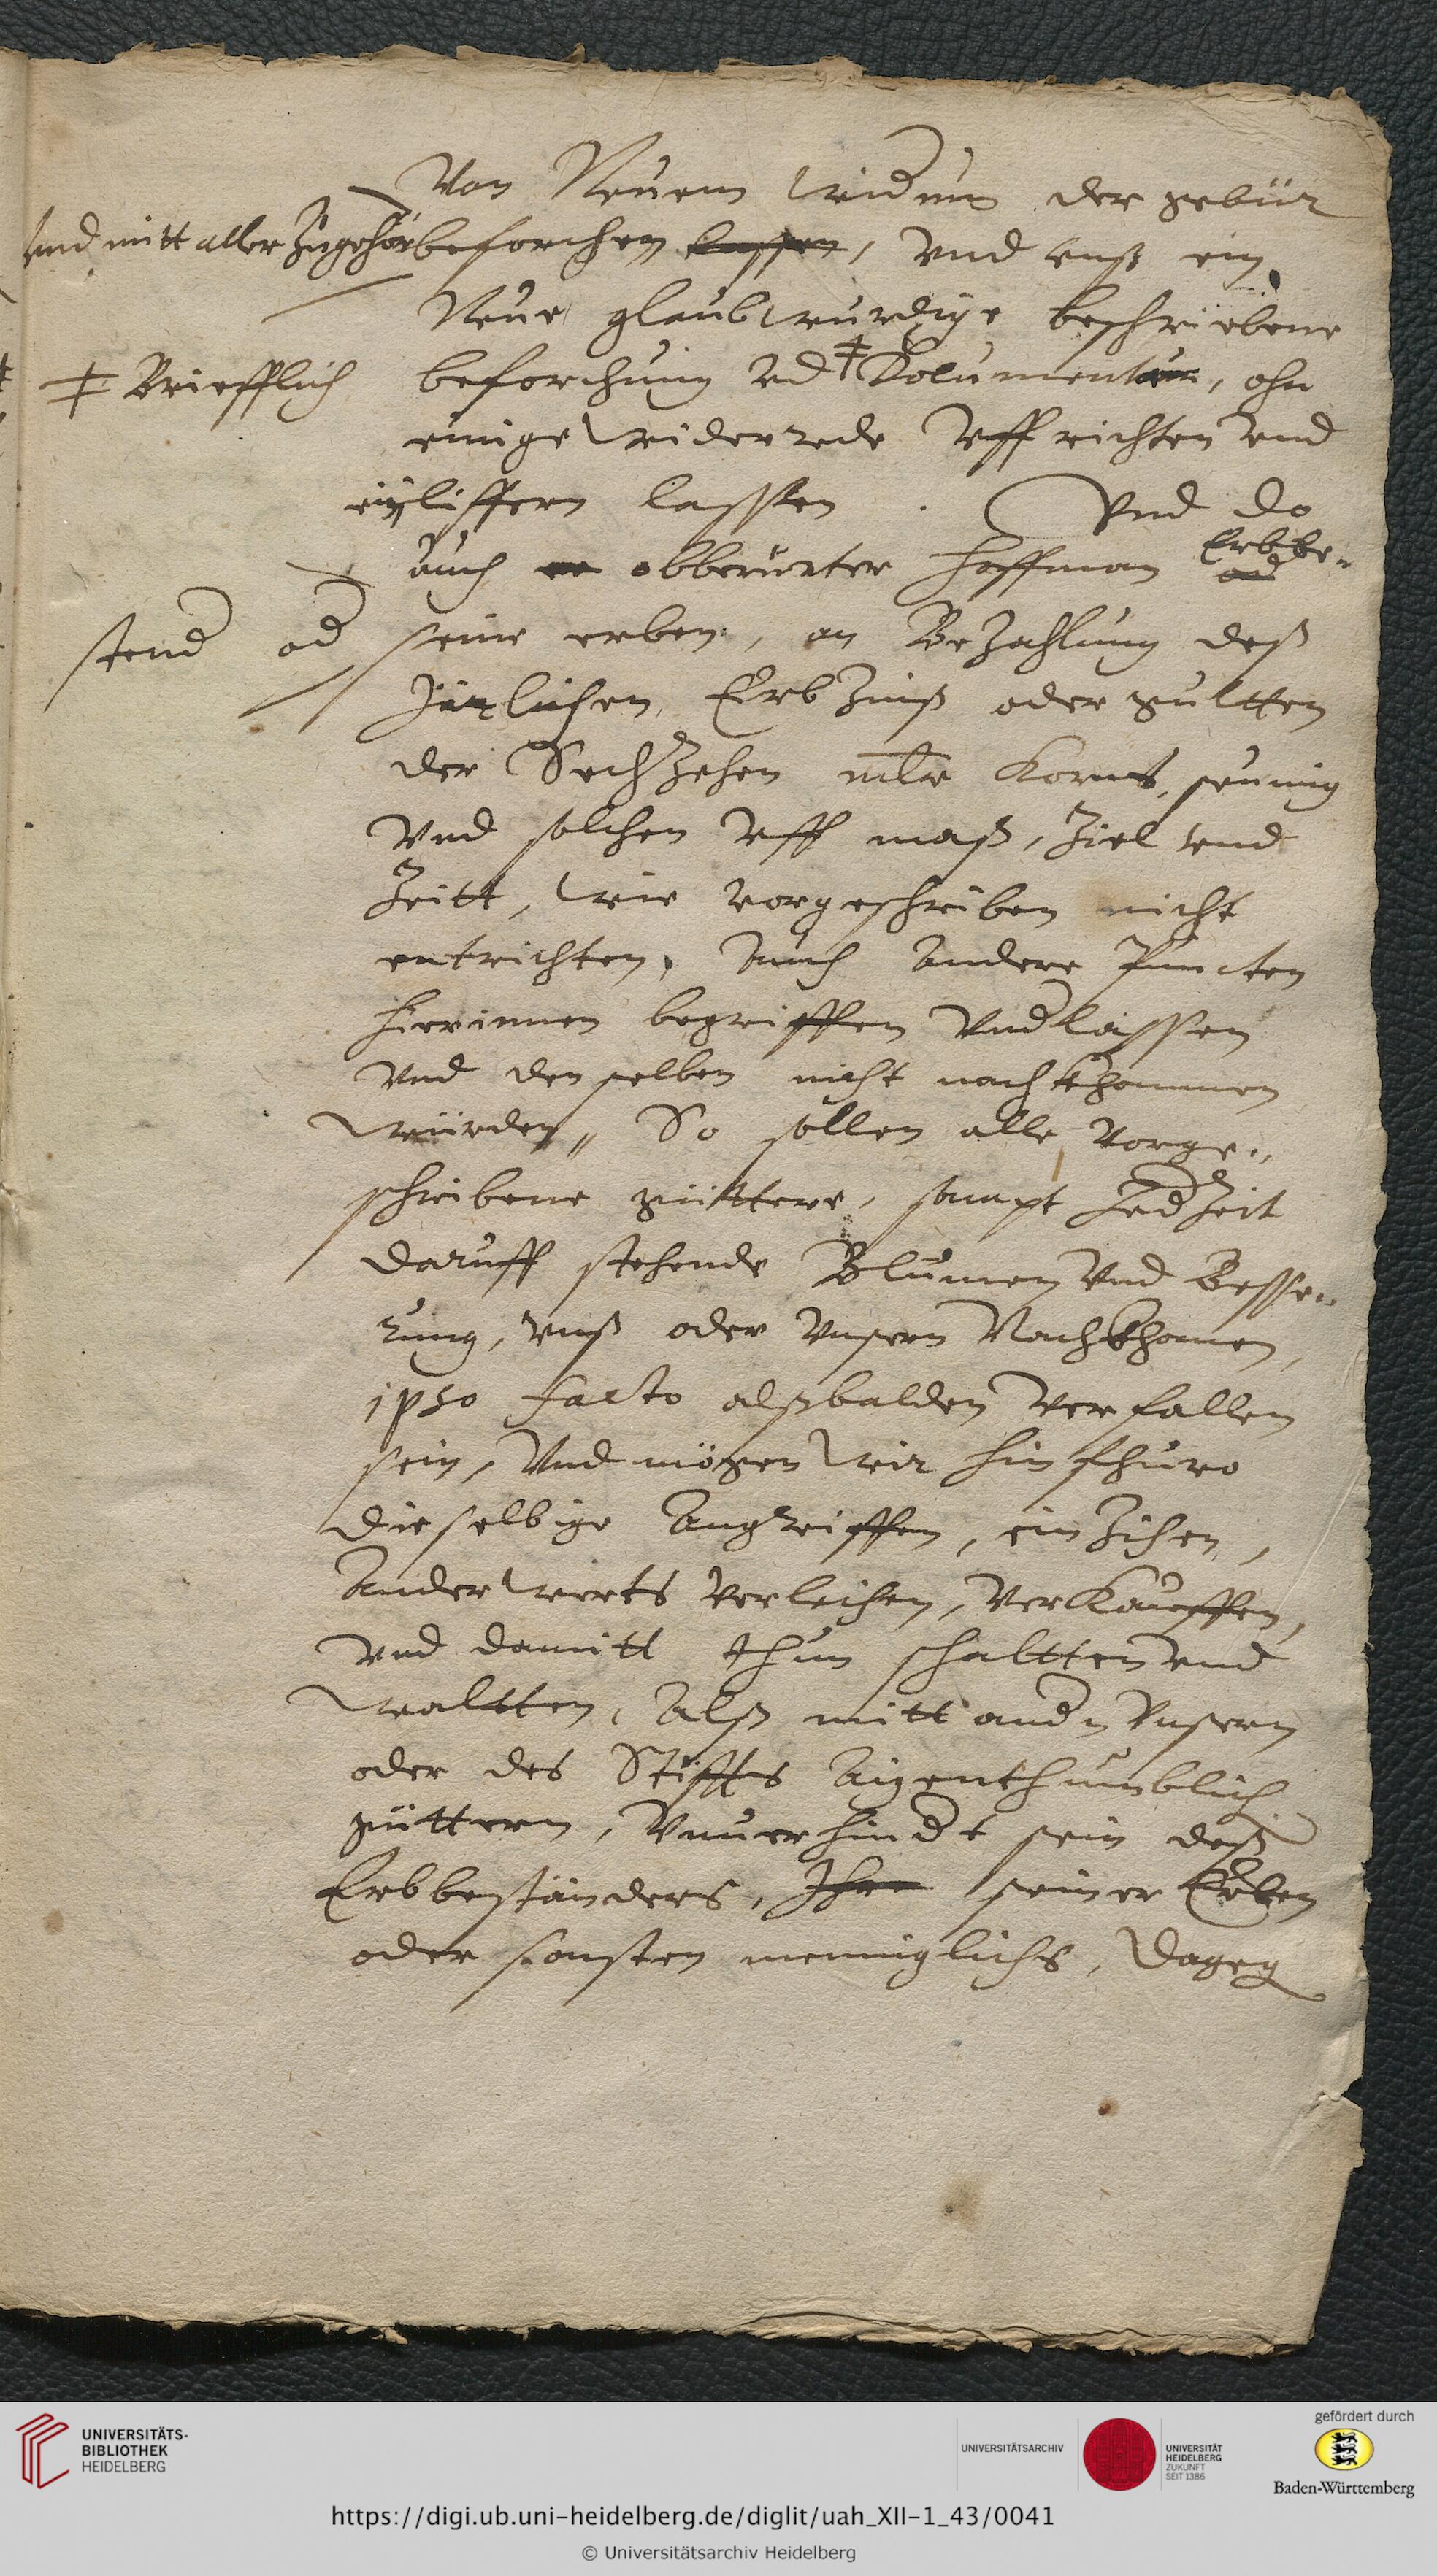 Von Neuem widumb der gebür
und mitt aller Zugehör beforchen lassen, vnd vnß ein
Neue glaubwurdige beschriebene
‡ Brieflich beforchung vnd ‡ Documenten, ohn
einige widerrede vffrichten vnd
eyliffern lassen. Vnd do
auch er obberürter Hoffman Erbbe„
stend od seine erben, an Bezahlung deß
Järlichen Erbzinß oder gultten
der Sechzehen mlr Korns, seumig
vnd solchen vff maß, Ziel vnd
Zeitt, wie vorgeschriben nicht
entrichten, Auch Andere Puncten
hierinnen begriffen vnd lassen
vnd denselben nicht nachkhommen
würden„ So sollen alle vorge„
schribene güttere, sampt Jedzeit
daruff stehende Blumen vnd Besse„
rung, vnß oder vnsern Nachkhomen,
ipso facto alßbalden verfallen
sein, Vnd mögen wir hinfhuro
dieselbige Angreiffen, einzihen,
Anderwerts verleihen, verkauffen,
vnd damitt thun schaltten vnd
waltten, Alß mitt andn vnsern
oder des Stiffts Aigenthumblich
güttern, Vnuerhindt sein deß
Erbbeständers, Ihre seiner Erben
oder sonsten menniglichs, Dageg
UNIVERSITÄTS-
BIBLIOTHEK
HEIDELBERG
UNIVERSITÄTSARCHIV
UNIVERSITÄT
HEIDELBERG
ZUKUNFT
SEIT 1386
gefördert durch
Baden-Württemberg
https://digi.ub.uni-heidelberg.de/diglit/uah_XII-1_43/0041
© Universitätsarchiv Heidelberg